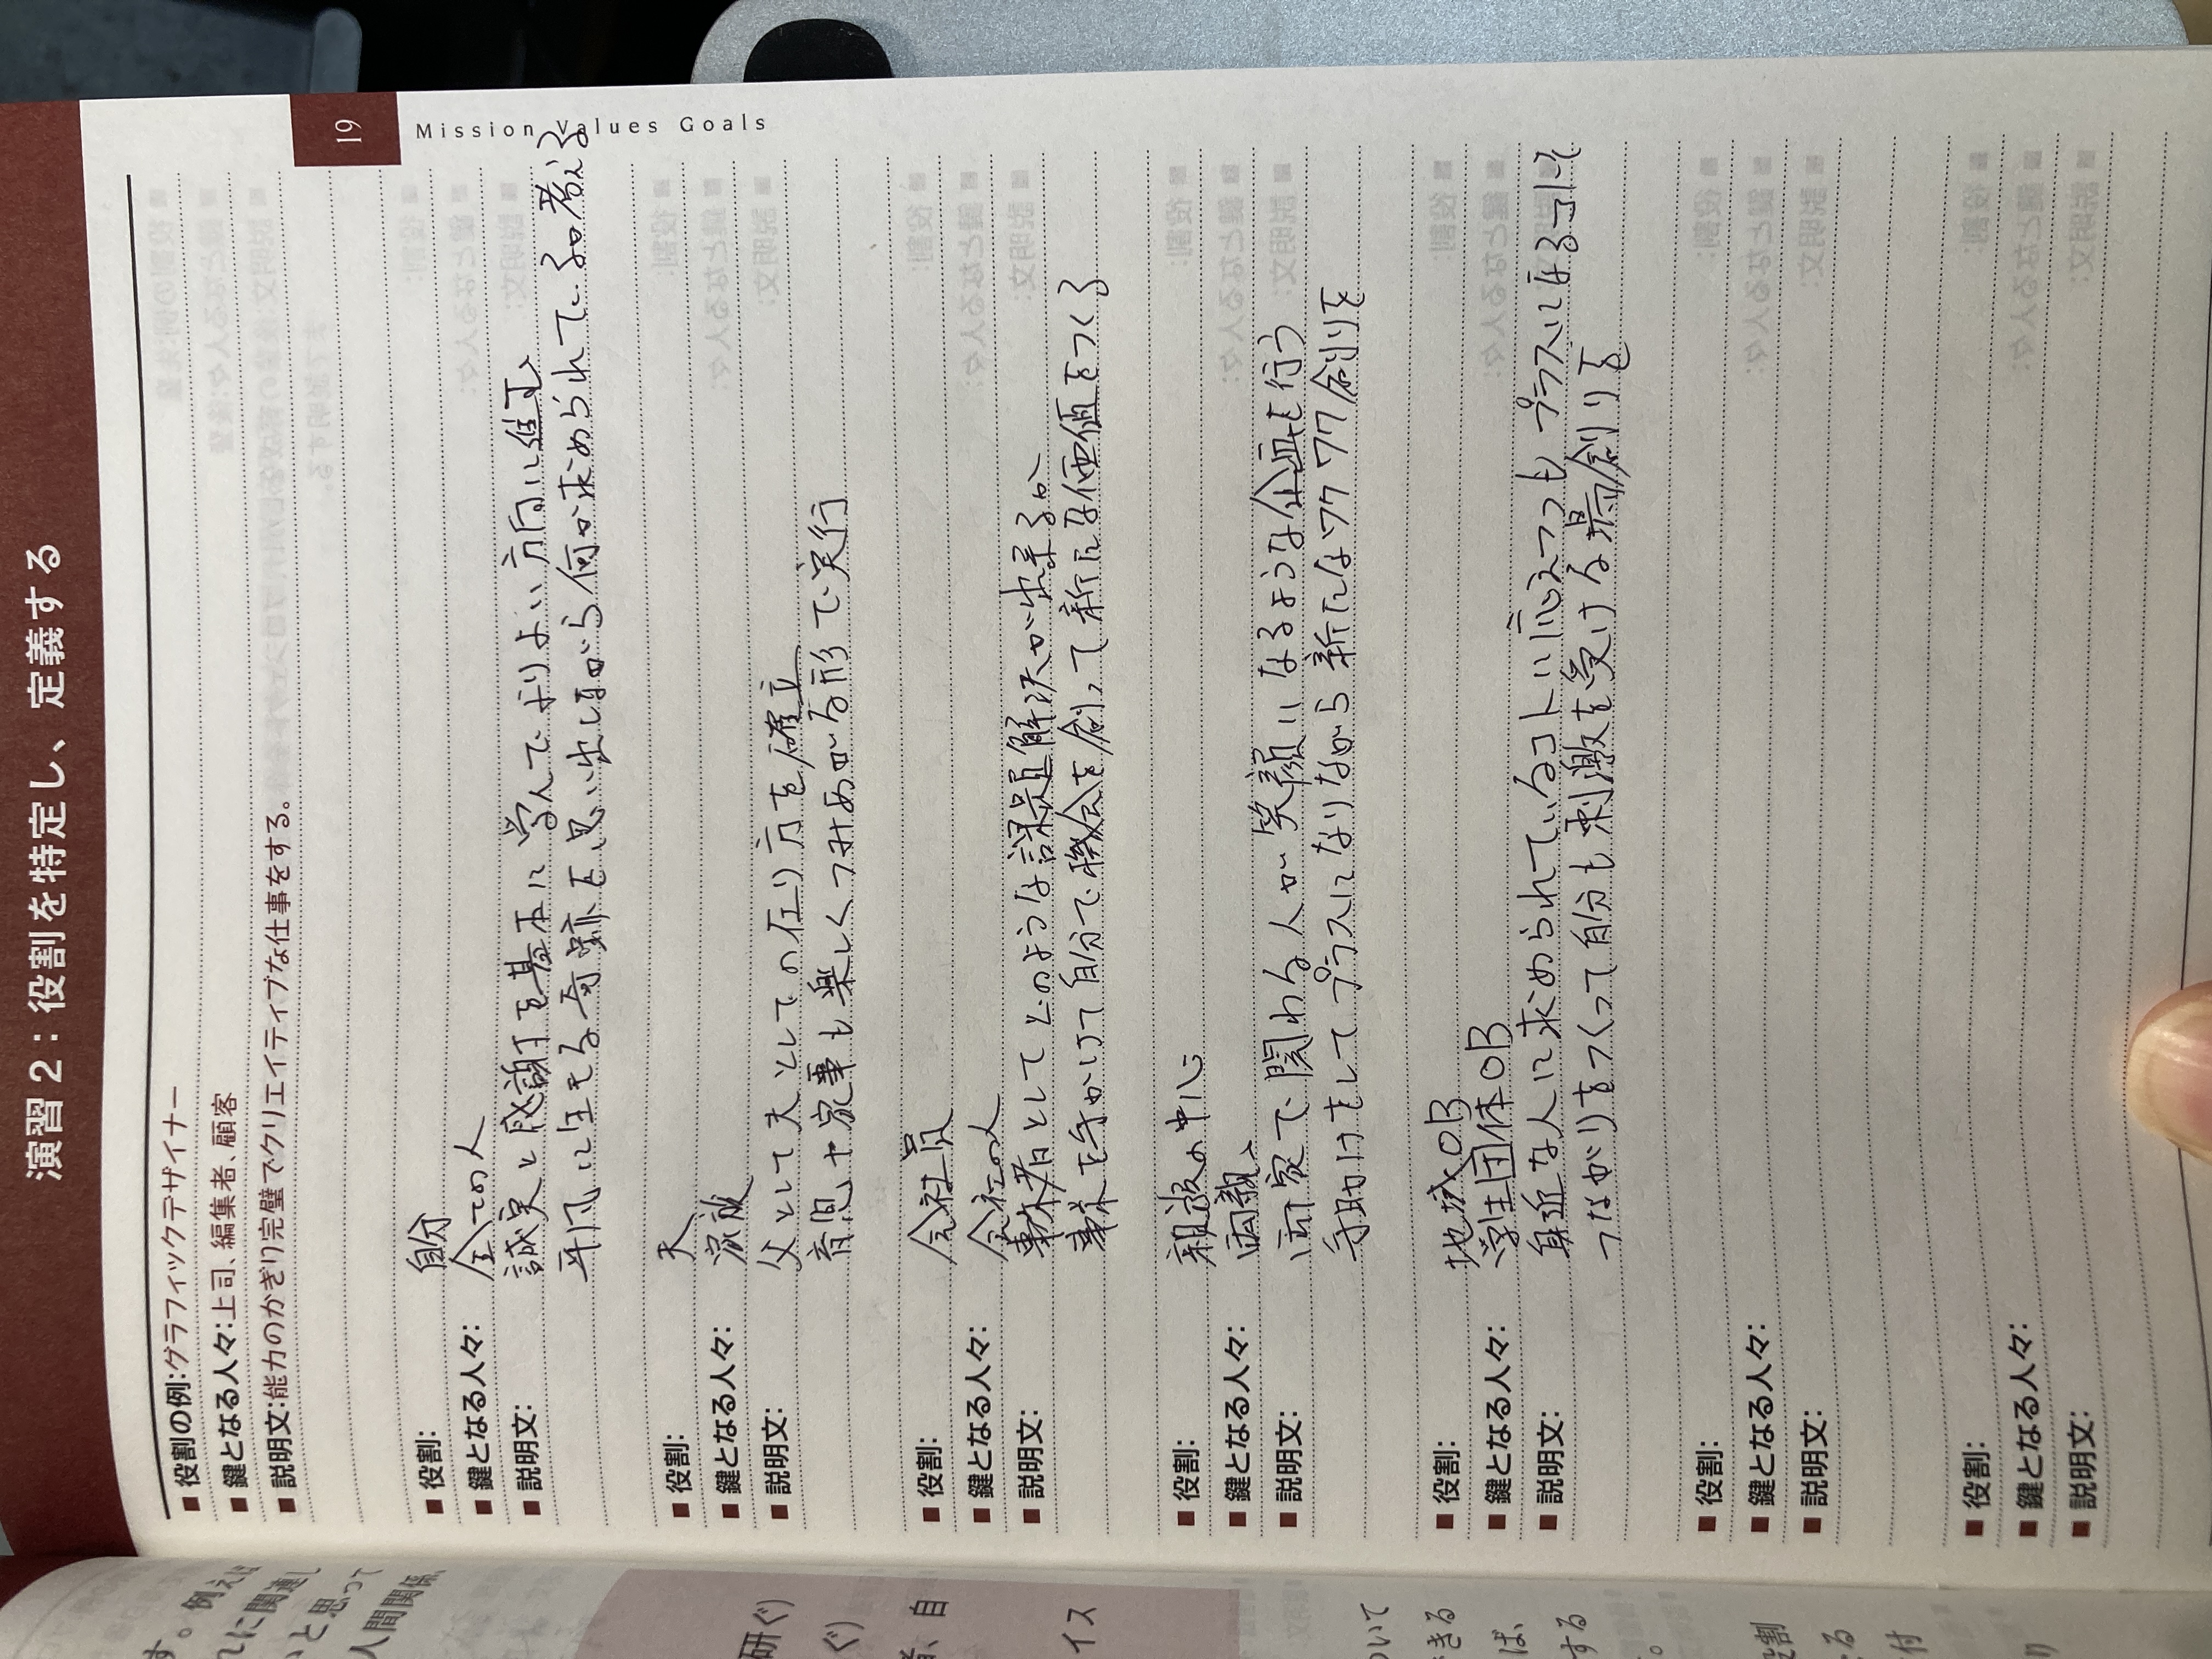 演習2：役割を特定し、定義する
19
Mission Values Goals
■ 役割の例：グラフィックデザイナー
■ 鍵となる人々：上司、編集者、顧客
■ 説明文：能力のかぎり完璧でクリエイティブな仕事をする。
■ 役割： 自分
■ 鍵となる人々： 全ての人
■ 説明文： 誠実と感謝を基本に学んでよりよい方向に進む、
平凡に生きる奇跡を思い出しながら何が求められているか考える
■ 役割： 夫
■ 鍵となる人々： 家族
■ 説明文： 父として夫としての在り方を確立
育児や家事も楽しくつみあがる形で実行
■ 役割： 会社員
■ 鍵となる人々： 会社の人
■ 説明文： 事業者としてどのような課題解決が出来るか
事業を手がけて自分で機会を創って新たな価値をつくる
■ 役割： 親族の中心
■ 鍵となる人々： 両親、
■ 説明文： 両家で関わる人が笑顔になるような企画を行う
手助けをしてプラスになりながら新たなワクワク創りを
■ 役割： 地域OB
■ 鍵となる人々： 学生団体OB
■ 説明文： 身近な人に求められているコトに応えつつも プラスになるコトを
つながりをつくって自分も刺激を受ける場創りを
■ 役割：
■ 鍵となる人々：
■ 説明文：
■ 役割：
■ 鍵となる人々：
■ 説明文：
す。例えば
に関連し
と思って
人間関係、
研ぐ）
ぐ）
者、自
イス
ついて
きる
ば、
する
役割
る
付
り